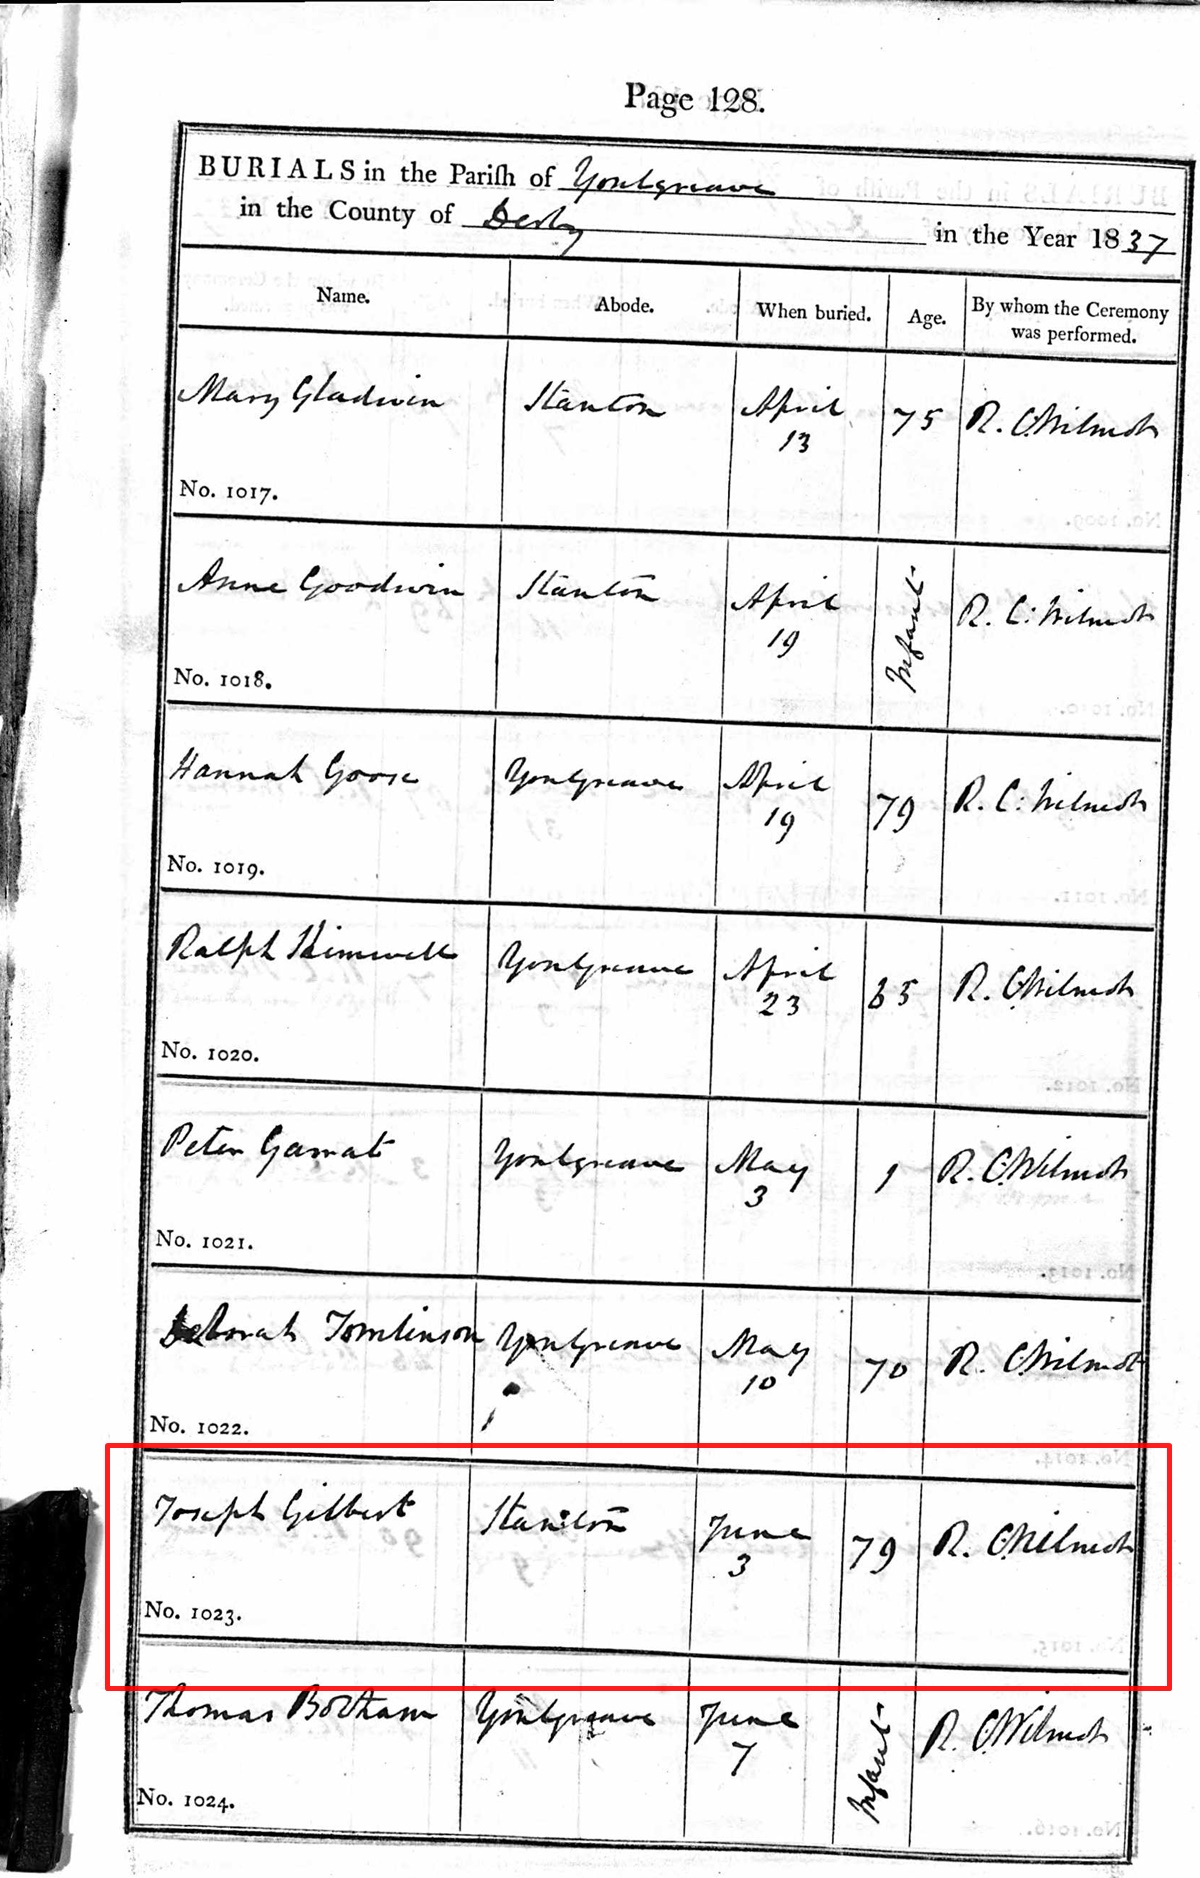 Page 128.
BURIALS in the Parish of Youlgreave
in the County of Derby in the Year 1837
Name. Abode. When buried. Age. By whom the Ceremony was performed.
Mary Gladwin Stanton April 13 75 R. C. Wilmot
No. 1017.
Anne Goodwin Stanton April 19 Infant R. C. Wilmot
No. 1018.
Hannah Goose Youlgreave April 19 79 R. C. Wilmot
No. 1019.
Ralph Youlgreave April 23 R. C. Wilmot
No. 1020.
Peter Garrat Youlgreave May 3 1 R. C. Wilmot
No. 1021.
Deborah Tomlinson Youlgreave May 10 70 R. C. Wilmot
No. 1022.
Joseph Gilbert Stanton June 3 79 R. C. Wilmot
No. 1023.
Thomas Botham Youlgreave June 7 Infant R. C. Wilmot
No. 1024.